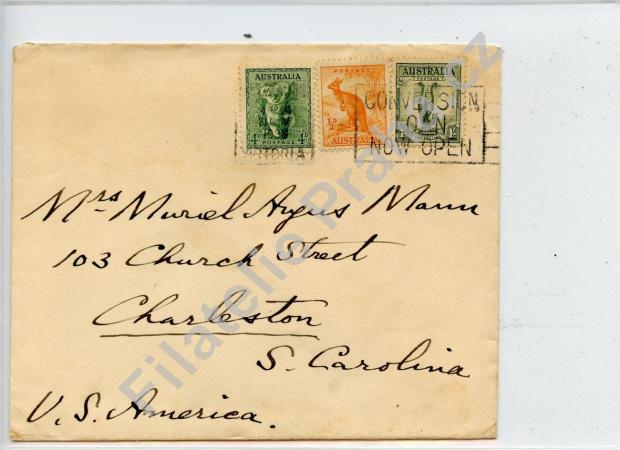 AUSTRALIA
4ᴰ POSTAGE 4ᴰ
VICTORIA
POSTAGE
½ᴰ
AUSTRALIA
AUSTRALIA
CONVERSION
LOAN
NOW OPEN
Mrs Muriel Angus Mann
103 Church Street
Charleston
S. Carolina
U.S. America.
Filatelie Praha.cz